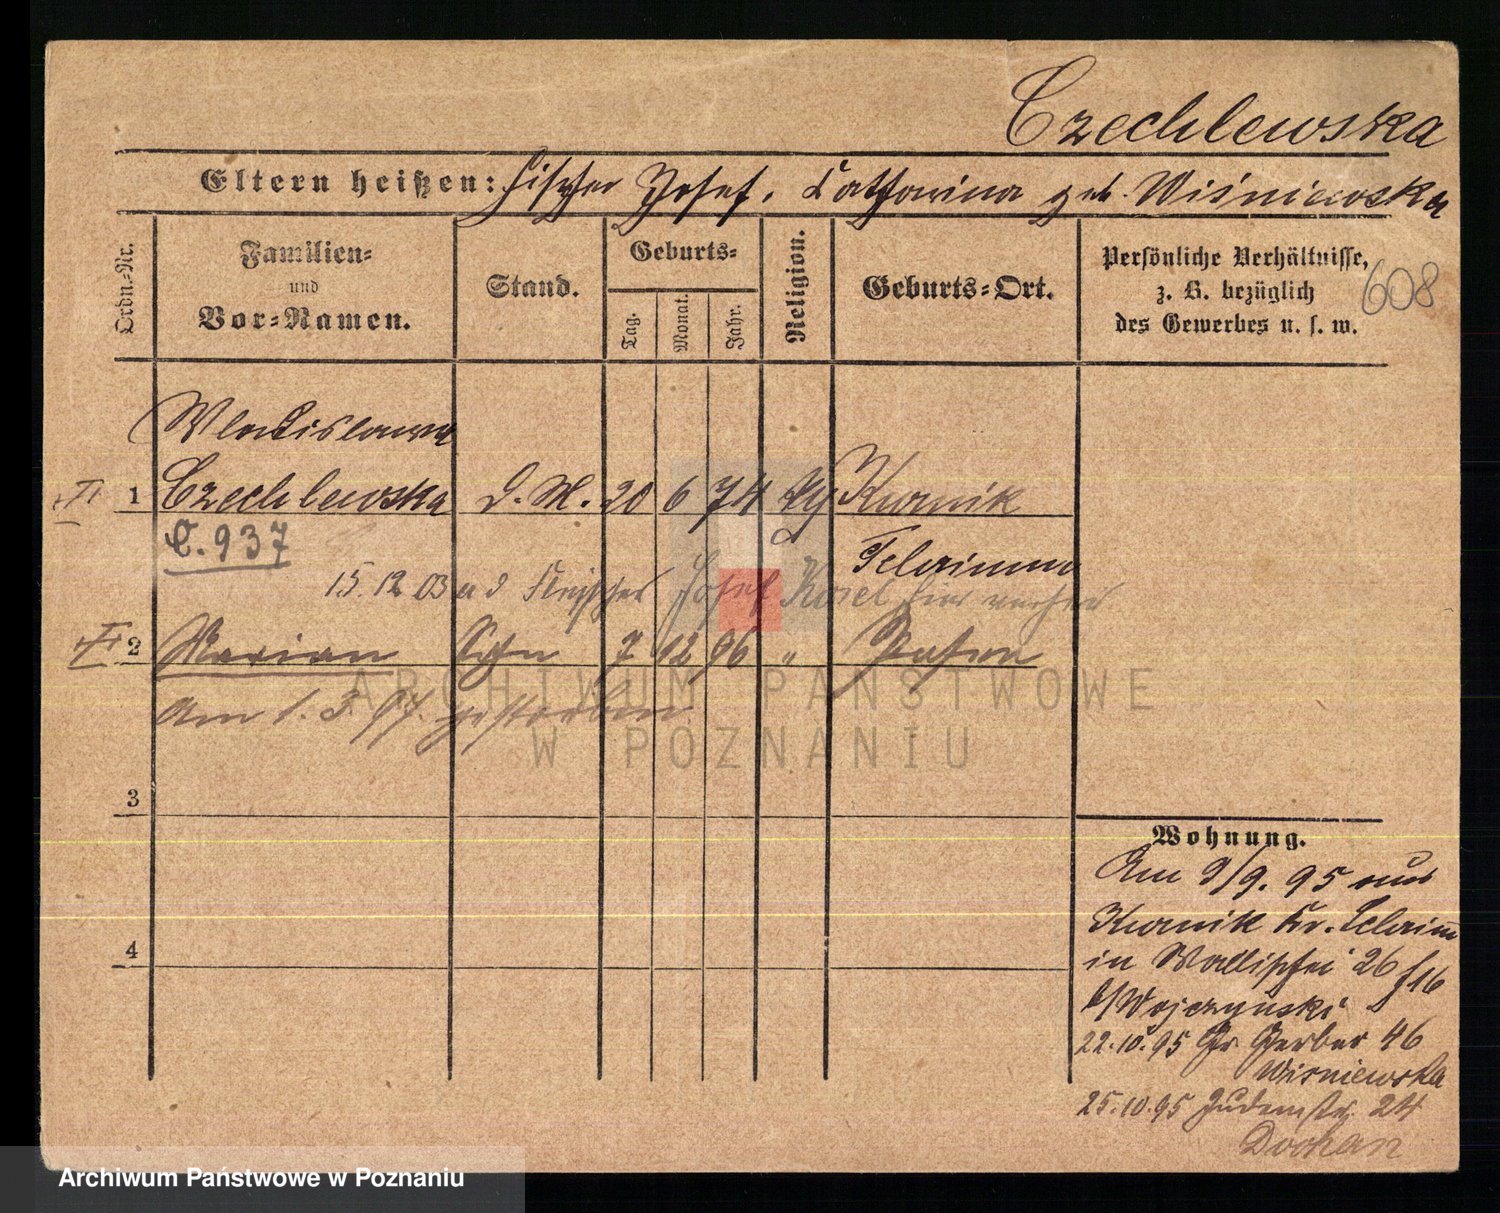 Czechlewska
Eltern heißen: Fischer Josef, Catharina geb. Wiśniewska
Ordn.-Nr.
Familien-
und
Vor-Namen.
Stand.
Geburts-
Tag.
Monat.
Jahr.
Religion.
Geburts-Ort.
Persönliche Verhältnisse,
z. B. bezüglich
des Gewerbes u. s. w.
608
Wladislawa
1 Czechlewska D. M. 20 6 74 Kurnik
C. 937
Schrimm
15.12.03 a d Fleischer Josef Kosel hier
2 Marian Sohn 7 12 96 " Posen
Am 1. 3. 97. gestorben
ARCHIWUM PAŃSTWOWE
W POZNANIU
3
4
Wohnung.
Am 9/9. 95 aus
Kurnik Kr. Schrimm
in Wallischei 26
b/Wojczynski
22.10.95 Gr Gerber 46
Wisniewska
25.10.95 Judenstr. 24
Dochan
Archiwum Państwowe w Poznaniu